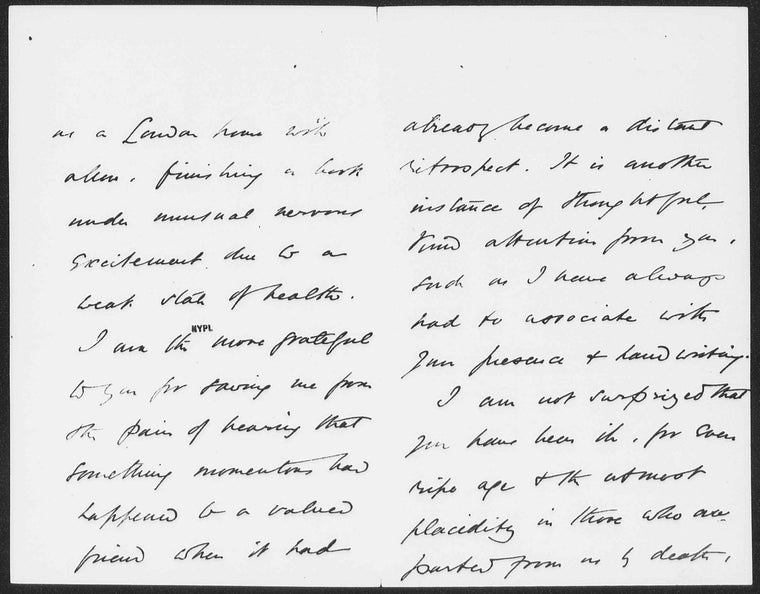 as a London home with
alone, finishing a book
under unusual nervous
excitement due to a
weak state of health.
I am the more grateful
NYPL
to you for saving me from
the pain of hearing that
something momentous had
happened to a valued
friend when it had
already become a distant
retrospect. It is another
instance of thoughtful,
kind attention from you,
such as I have always
had to associate with
your presence & handwriting.
I am not surprized that
you have been ill, for even
ripe age & the utmost
placidity in those who are
parted from us by death,